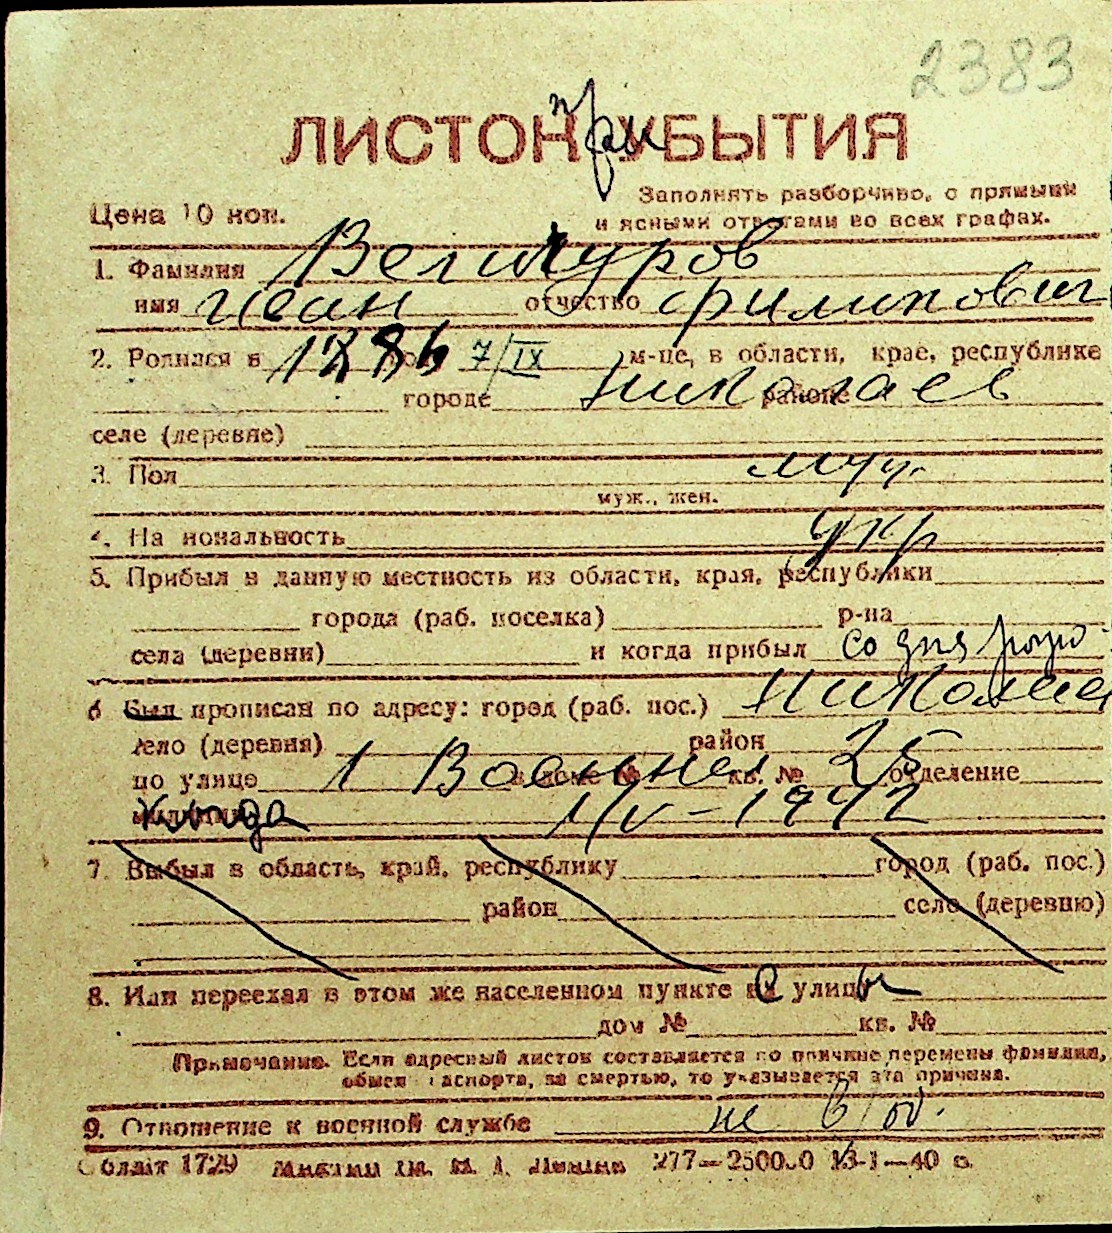 2383
ЛИСТОК при УБЫТИЯ
Цена 10 коп.
Заполнять разборчиво, с прямыми
и ясными ответами во всех графах.
1. Фамилия Велижуров
имя Иван отчество Филипович
2. Родился в 1886 году 7/IX м-це, в области, крае, республике
городе Николаев районе
селе (деревне)
3. Пол муж.
муж., жен.
4. Национальность укр
5. Прибыл в данную местность из области, края, республики
города (раб. поселка) р-на
села (деревни) и когда прибыл со дня рожд
6 Был прописан по адресу: город (раб. пос.) Николаев
село (деревня) район
по улице 1 Военная в доме № кв. № 25 отделение
милиции когда 1/V-1942
7. Выбыл в область, край, республику город (раб. пос.)
район село (деревню)
8. Или переехал в этом же населенном пункте с улицы
дом № кв. №
Примечание. Если адресный листок составляется по причине перемены фамилии,
обмен паспорта, за смертью, то указывается эта причина.
9. Отношение к военной службе не в/об.
Облит 1729 им. В. И. Ленина 277—250000 13-1—40 г.